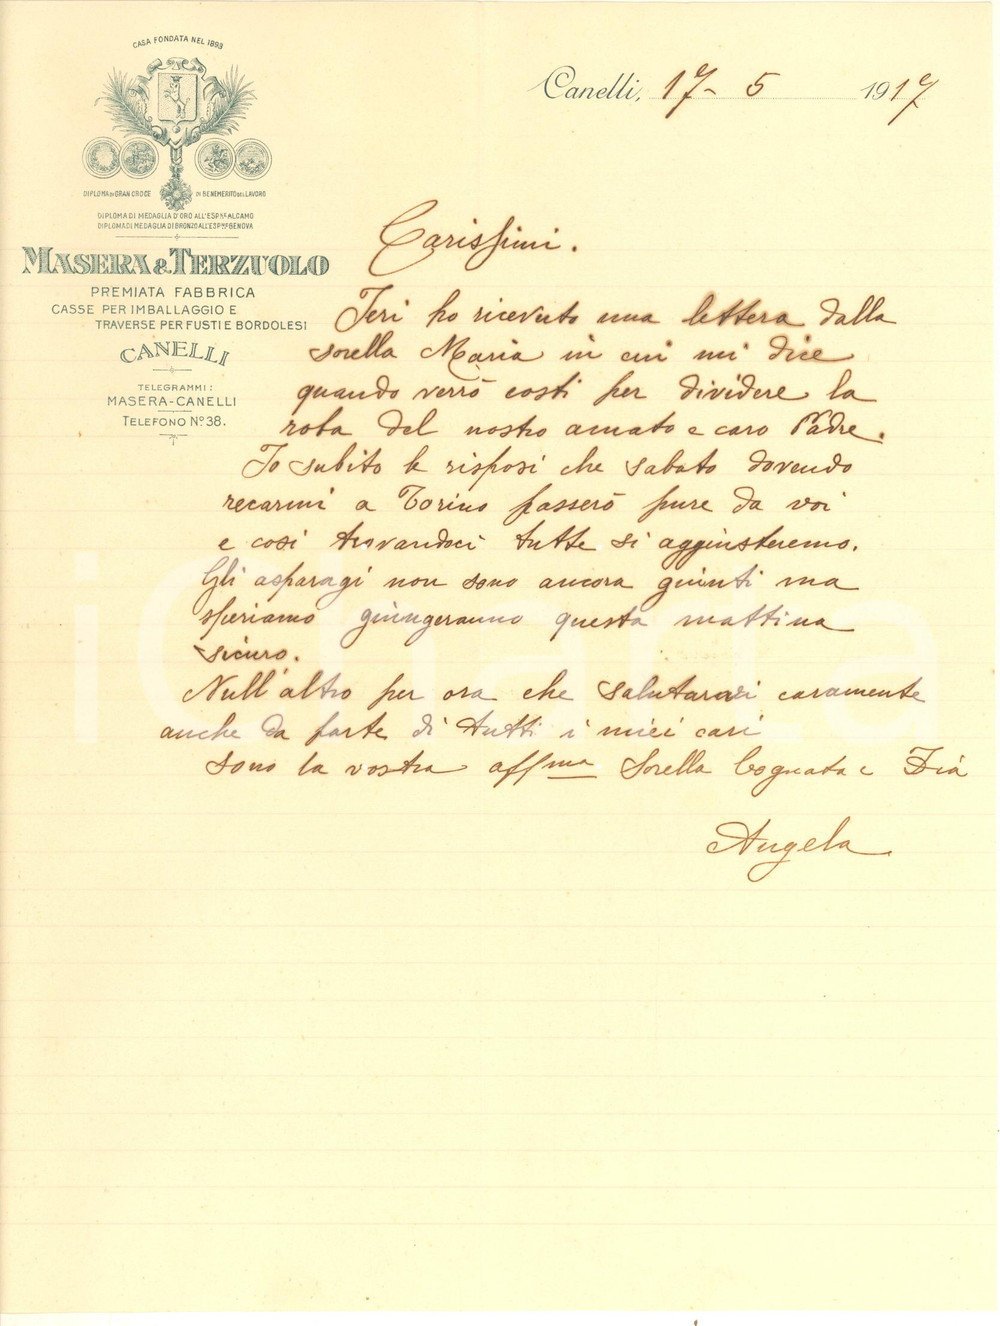 CASA FONDATA NEL 1893
DIPLOMA DI GRAN CROCE DI BENEMERITO DEL LAVORO
DIPLOMA DI MEDAGLIA D'ORO ALL'ESP.NE ALCAMO
DIPLOMA DI MEDAGLIA DI BRONZO ALL'ESP.NE GENOVA
MASERA & TERZUOLO
PREMIATA FABBRICA
CASSE PER IMBALLAGGIO E
TRAVERSE PER FUSTI E BORDOLESI
CANELLI
TELEGRAMMI:
MASERA-CANELLI
TELEFONO Nº 38.
Canelli, 17- 5 1917
Carissimi.
Ieri ho ricevuto una lettera dalla
sorella Maria in cui mi dice
quando verrò costi per dividere la
roba del nostro amato e caro Padre.
Io subito le risposi che sabato dovendo
recarmi a Torino passerò pure da voi
e cosi trovandoci tutte si aggiusteremo.
Gli asparagi non sono ancora giunti ma
speriamo giungeranno questa mattina
sicuro.
Null'altro per ora che salutarvi caramente
anche da parte di tutti i miei cari
sono la vostra affma Sorella Cognata e Zia
Angela
iCharta